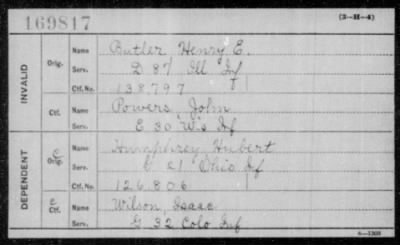 169817
(3-H-4)
INVALID
Orig.
Name Butler Henry E.
Serv. D 87 Ill Inf
Ctf. No. 138797
Ctf.
Name Powers, John
Serv. E 30 Wis Inf
DEPENDENT
C
Orig.
Name Humphrey Hubert
Serv. C 21 Ohio Inf
Ctf. No. 126.806
C
Ctf.
Name Wilson, Isaac
Serv. G 32 Colo Inf